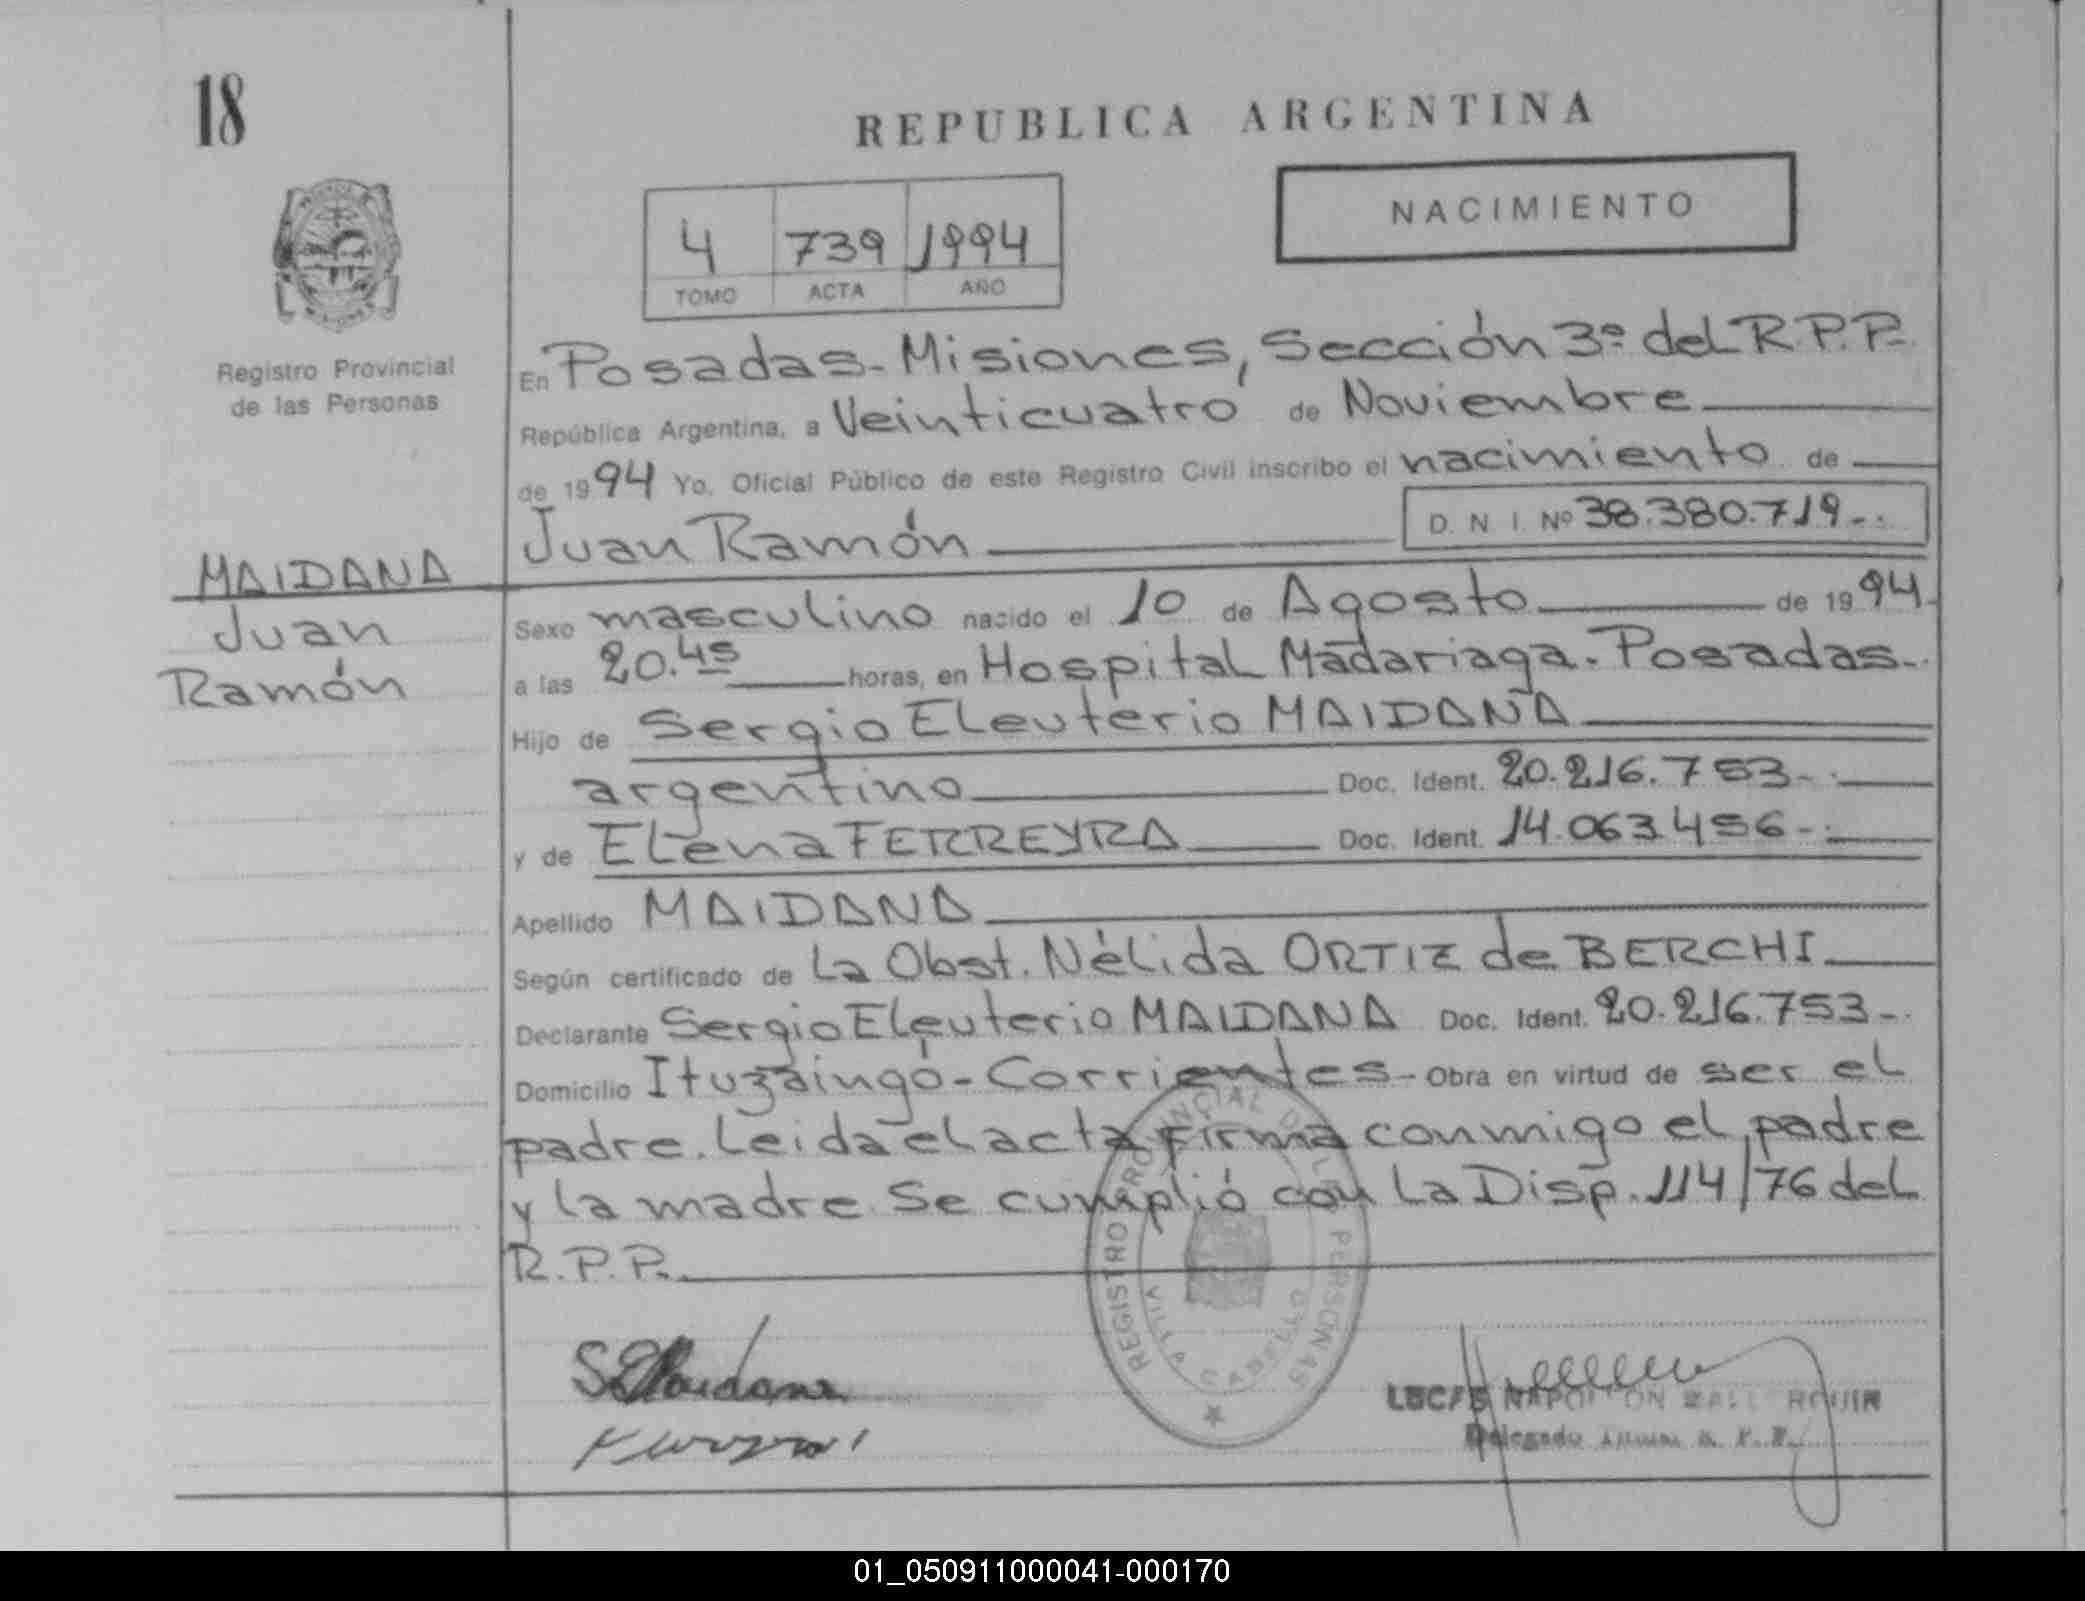 18
REPUBLICA ARGENTINA
NACIMIENTO
4 739 1994
TOMO ACTA AÑO
Registro Provincial
de las Personas
En Posadas-Misiones, Sección 3ª del R.P.P.
República Argentina, a Veinticuatro de Noviembre
de 1994 Yo, Oficial Público de este Registro Civil inscribo el nacimiento de
Juan Ramón D. N. I. Nº 38.380.719-.
MAIDANA
Juan
Ramón
Sexo masculino nacido el 10 de Agosto de 1994.
a las 20.45 horas, en Hospital Madariaga. Posadas-.
Hijo de Sergio Eleuterio MAIDANA
argentino Doc. Ident. 20.216.753-.
y de Elena FERREYRA Doc. Ident. 14.063.456-.
Apellido MAIDANA
Según certificado de La Obst. Nélida ORTIZ de BERCHI
Declarante Sergio Eleuterio MAIDANA Doc. Ident. 20.216.753-.
Domicilio Ituzaingó-Corrientes- Obra en virtud de ser el
padre. Leida el acta firma conmigo el padre
y la madre. Se cumplió con la Disp. 114/76 del
R.P.P.
REGISTRO PROVINCIAL DE LAS PERSONAS
VILLA CABELLO
S E Maidana
NAPOLEON
Delegado
01_050911000041-000170